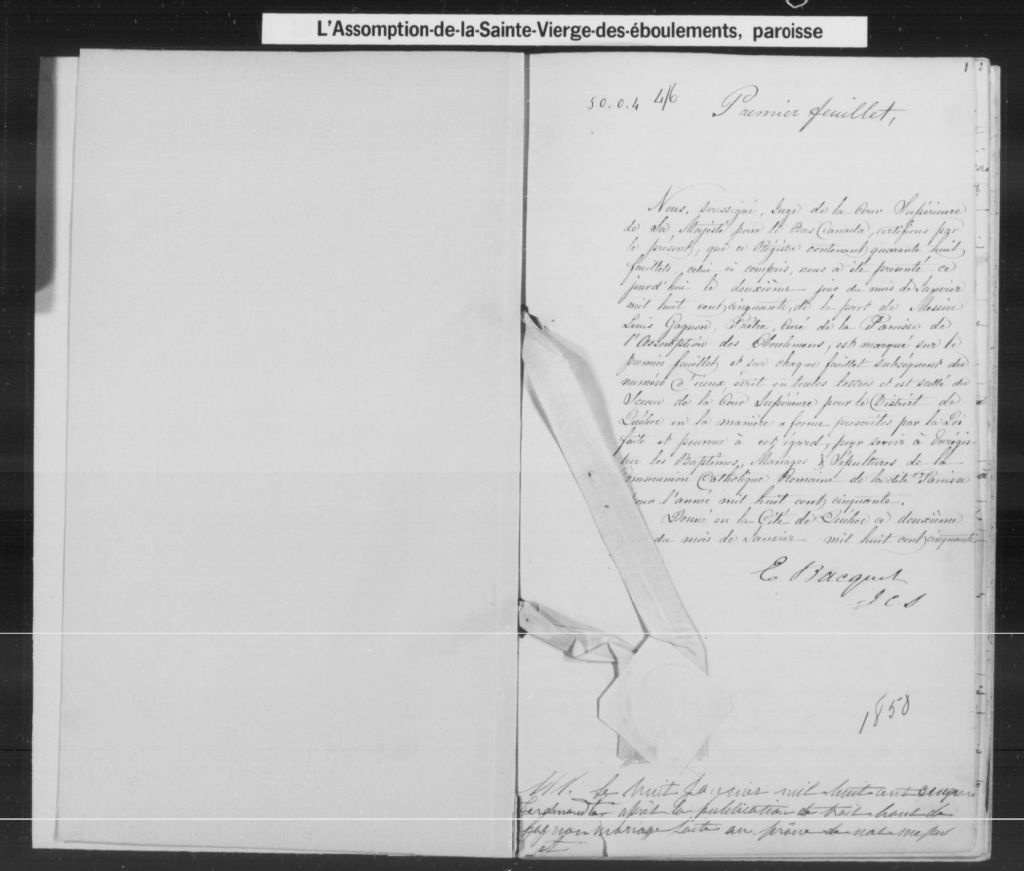 L'Assomption-de-la-Sainte-Vierge-des-éboulements, paroisse
1 2
50.0.4 4/6
Premier feuillet,
Nous, soussigné, Juge de la Cour Supérieure
de Sa Majesté pour le Bas Canada, certifions par
le présent, que ce Régistre contenant quarante huit
feuillets, celui ci compris, nous a été présenté ce
jourd'hui le deuxième jour du mois de Janvier
mil huit cent cinquante, de la part de Messire
Louis Gagnon, Prêtre, Curé de la Paroisse de
l'Assomption des Eboulemens, est marqué sur le
premier feuillet et sur chaque feuillet subséquent du
numéro d'iceux, écrit en toutes lettres et est scellé du
Sceau de la Cour Supérieure pour le District de
Québec en la manière & forme prescrites par la Loi
faite et pourvue à cet égard, pour servir à Enrégis-
trer les Baptêmes, Mariages & Sépultures de la
Communion Catholique Romaine de la dite Paroisse
pour l'année mil huit cent cinquante.
Donné en la Cité de Québec ce deuxième
du mois de Janvier mil huit cent cinquante
E Bacquet
J C S
1850
M1. Le huit Janvier mil huit cent cinquan
Ferdinand après la publication de trois bans de
mariage faite au prône de nos messes
et